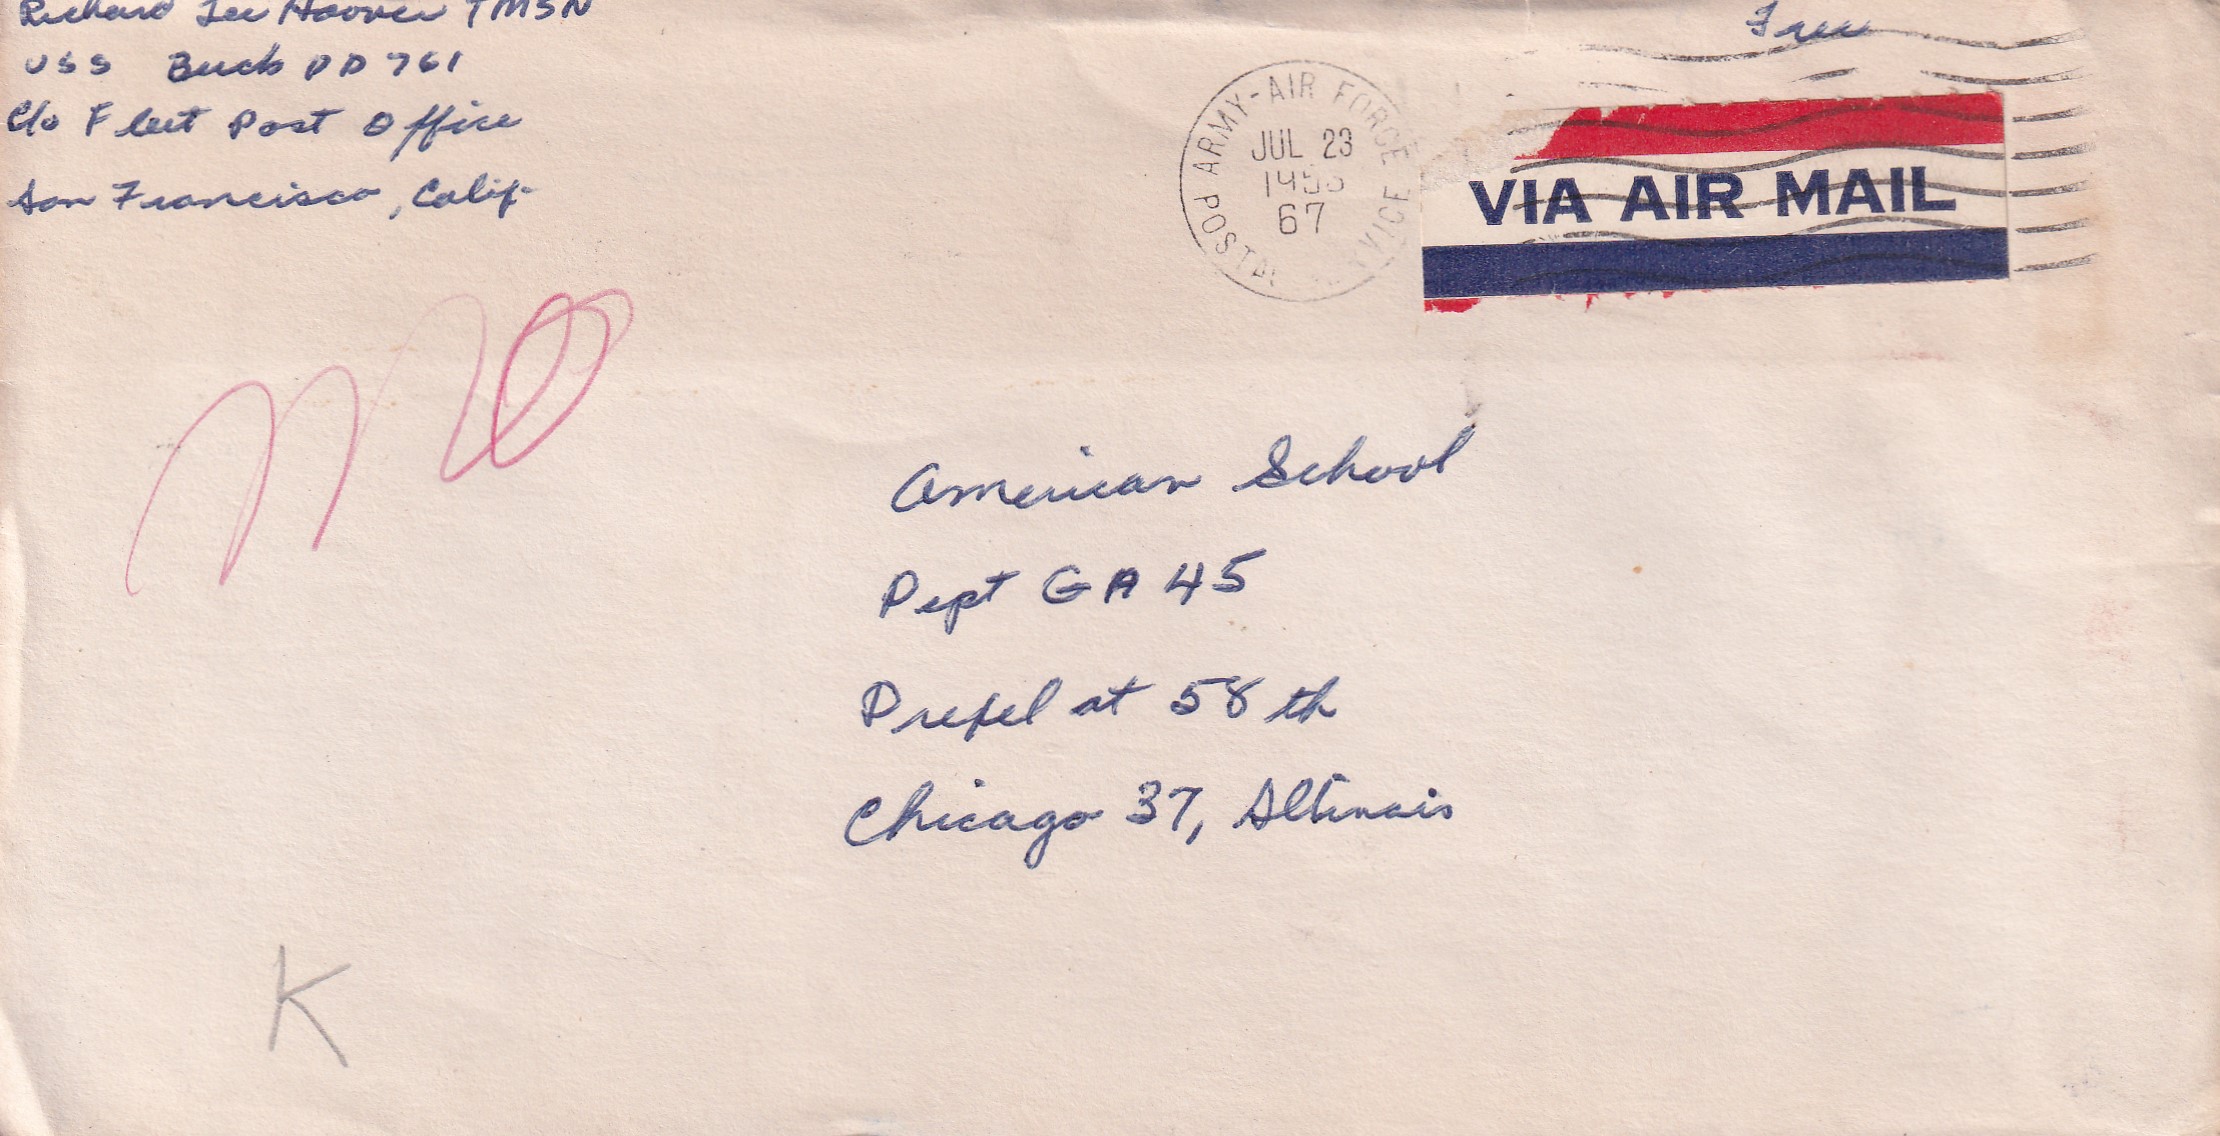 Richard Lee Hoover TMSN
USS Buck DD 761
C/o Fleet Post Office
San Francisco, Calif.
Free
ARMY-AIR FORCE POSTAL SERVICE
JUL 23
195
67
VIA AIR MAIL
American School
Dept GA 45
Drexel at 58 th
Chicago 37, Illinois
K